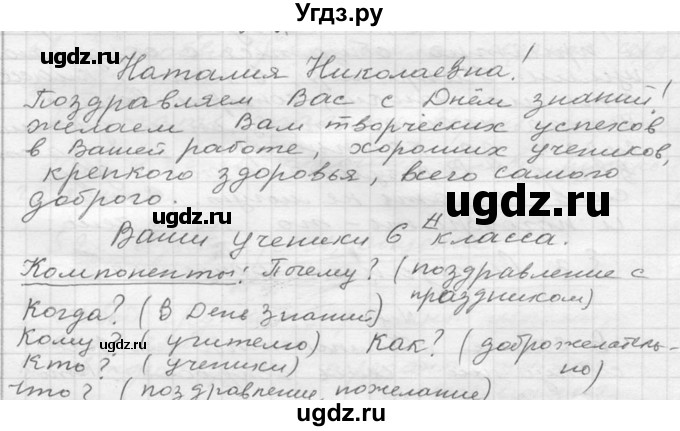 Угдз.ру
ugdz.ru ugdz.ru
Наталия Николаевна!
Поздравляем Вас с Днём знаний!
желаем Вам творческих успехов
в Вашей работе, хороших учеников,
крепкого здоровья, всего самого
доброго.
ugdz.ru ugdz.ru
Ваши ученики 6 "А" класса.
Компоненты: Почему? (поздравление с
праздником)
Когда? (В День Знаний)
ugdz.ru ugdz.ru
Кому? (учителю) Как? (доброжелатель-
но)
Кто? (ученики)
Что? (поздравление, пожелание)
ugdz.ru
ugdz.ru